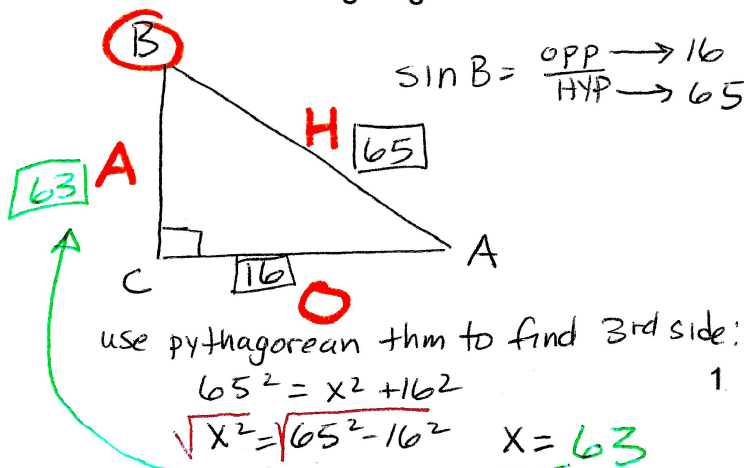 B
sin B = OPP → 16
HYP → 65
H
65
A
63
C
16
A
O
use pythagorean thm to find 3rd side:
65² = x² + 16²
1
√x² = √65² - 16² x = 63